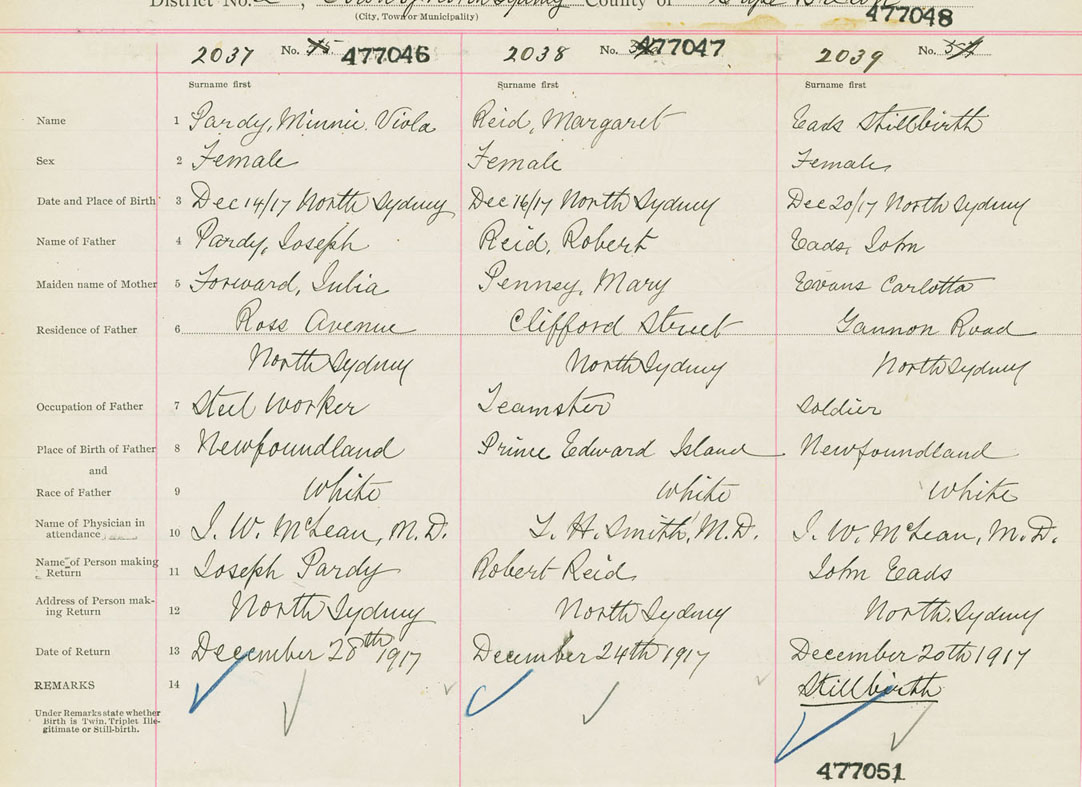 District No. 2, Town of North Sydney County of Cape Breton
(City, Town or Municipality)
477048
2037 No. 477046 2038 No. 477047 2039 No.
Surname first Surname first Surname first
Name 1 Pardy, Minnie Viola Reid, Margaret Eads Stillbirth
Sex 2 Female Female Female
Date and Place of Birth 3 Dec 14/17 North Sydney Dec 16/17 North Sydney Dec 20/17 North Sydney
Name of Father 4 Pardy, Joseph Reid, Robert Eads, John
Maiden name of Mother 5 Forward, Julia Penney, Mary Evans Carlotta
Residence of Father 6 Ross Avenue Clifford Street Gannon Road
North Sydney North Sydney North Sydney
Occupation of Father 7 Steel Worker Teamster Soldier
Place of Birth of Father 8 Newfoundland Prince Edward Island Newfoundland
and
Race of Father 9 White White White
Name of Physician in
attendance 10 J. W. McLean, M.D. L. H. Smith, M.D. J. W. McLean, M.D.
Name of Person making
Return 11 Joseph Pardy Robert Reid John Eads
Address of Person mak-
ing Return 12 North Sydney North Sydney North Sydney
Date of Return 13 December 28th 1917 December 24th 1917 December 20th 1917
REMARKS 14 Stillbirth
Under Remarks state whether
Birth is Twin, Triplet Ille-
gitimate or Still-birth.
477051